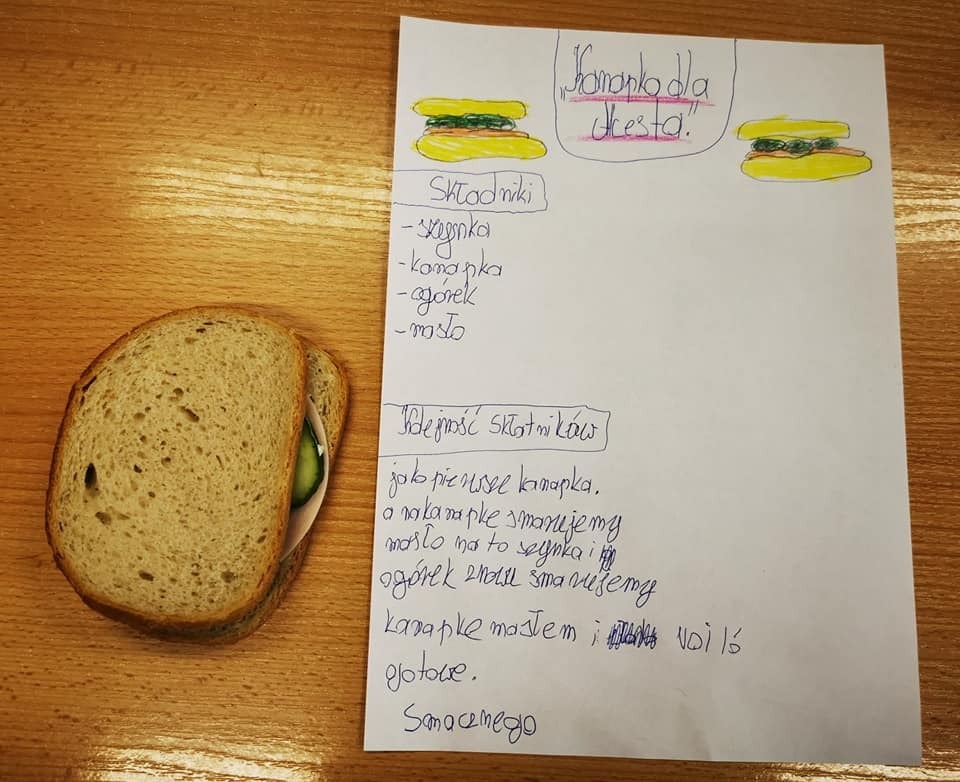 „Kanapka dla
Alesta."
Składniki
- szynka
- kanapka
- ogórek
- masło
Kolejność składników
jako pierwsze kanapka.
a na kanapkę smarujemy
masło na to szynka i
ogórek znowu smarujemy
kanapkę masłem i voi là
gotowe.
Smacznego